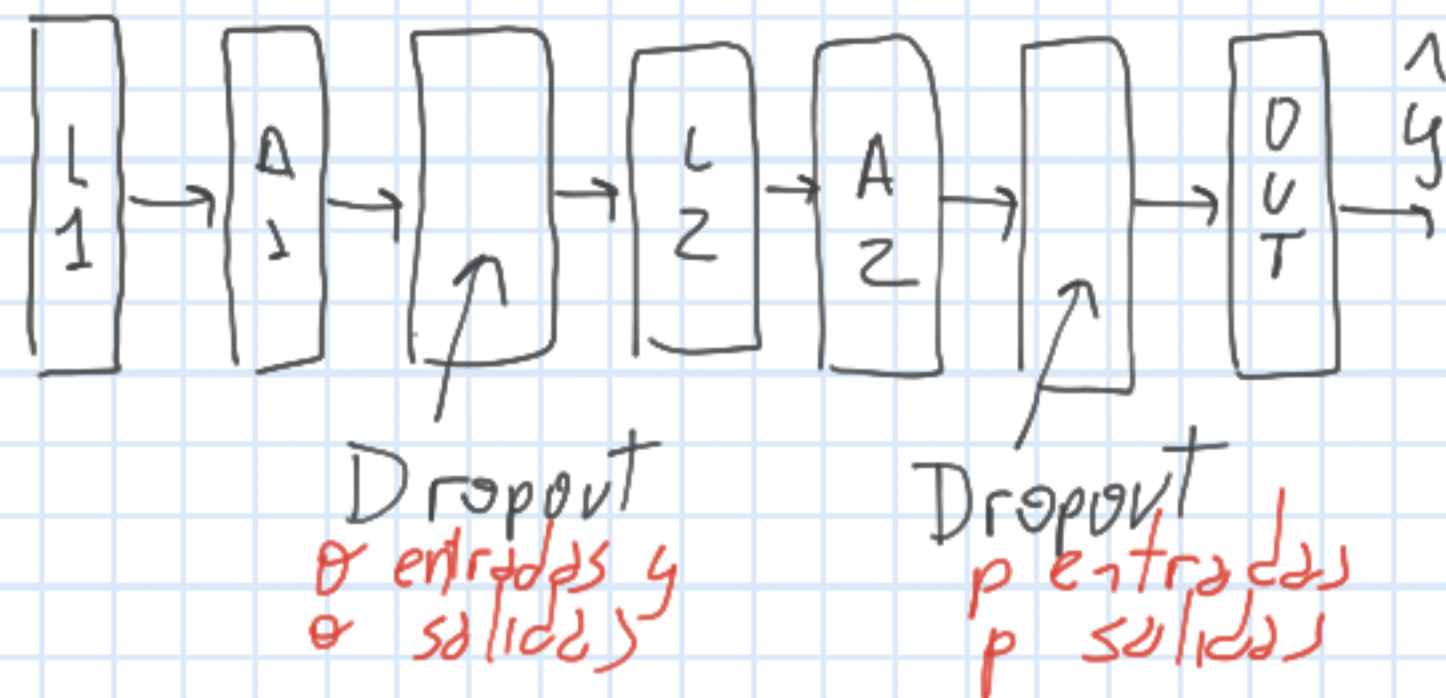 L1
A1
L2
A2
OUT
ŷ
Dropout
θ entradas y
θ salidas
Dropout
p entradas
p salidas